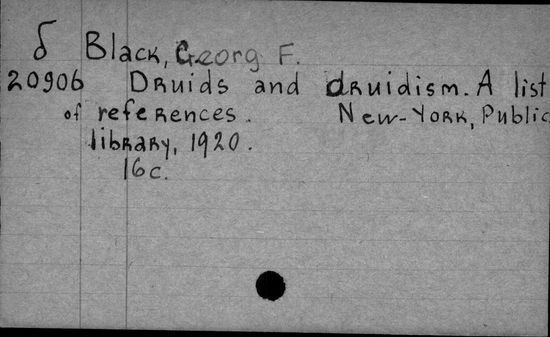 δ Black, Georg F.
20906 Druids and druidism. A list
of references. New-York, Public
library, 1920.
16c.